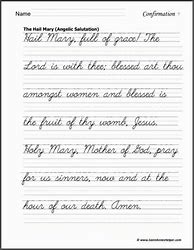 Name Confirmation
The Hail Mary (Angelic Salutation)
Hail Mary, full of grace! The
Lord is with thee; blessed art thou
amongst women and blessed is
the fruit of thy womb, Jesus.
Holy Mary, Mother of God, pray
for us sinners, now and at the
hour of our death. Amen.